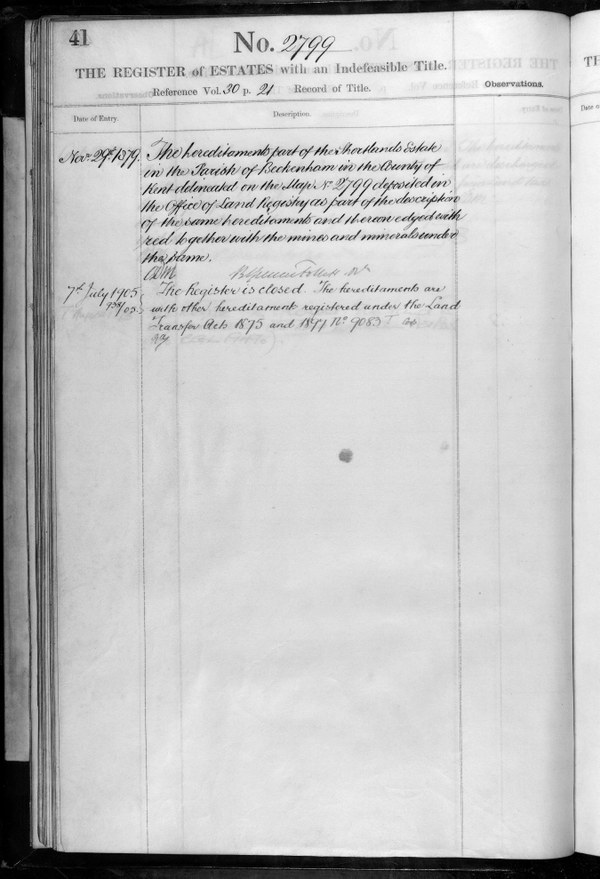 41
No. 2799
THE REGISTER of ESTATES with an Indefeasible Title.
Reference Vol. 30 p. 21 Record of Title.
Observations.
Date of Entry.
Description.
Nov 29th 1879.
The hereditaments part of the Shortlands Estate
in the Parish of Beckenham in the County of
Kent delineated on the Map No 2799 deposited in
the Office of Land Registry as part of the description
of the same hereditaments and thereon edged with
red together with the mines and minerals under
the same.
7th July 1905
The Register is closed. The hereditaments are
with other hereditament registered under the Land
Transfer Acts 1875 and 1897 No 9083